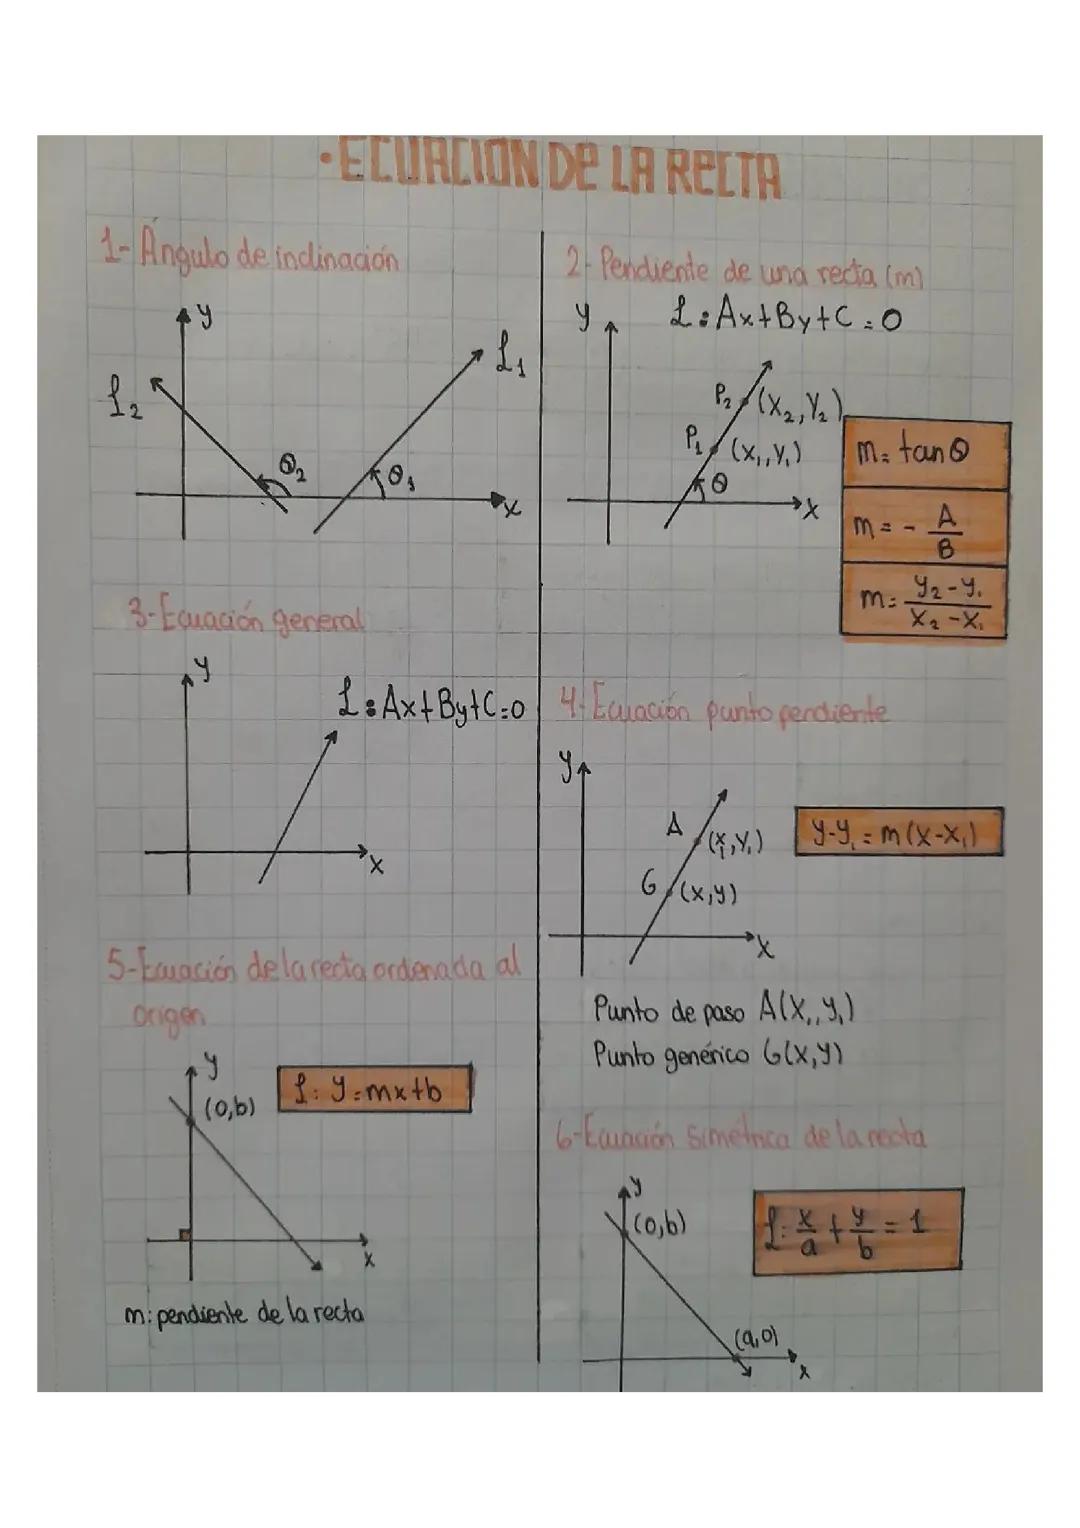 ·ECUACION DE LA RECTA
1- Ángulo de inclinación
y
L₁
L₂
θ₂
θ₁
x
2- Pendiente de una recta (m)
L: Ax+By+C=0
y
P₂ (x₂,y₂)
P₁ (x₁,y₁)
θ
x
m= tanθ
m= - A/B
m= y₂-y₁/x₂-x₁
3-Ecuación general
y
L: Ax+By+C=0
x
4- Ecuación punto pendiente
y
A (x₁,y₁)
G (x,y)
x
y-y₁=m(x-x₁)
Punto de paso A(x₁,y₁)
Punto genérico G(x,y)
5-Ecuación de la recta ordenada al
origen
y
(0,b)
L: y=mx+b
x
m: pendiente de la recta
6-Ecuación simétrica de la recta
y
(0,b)
L: x/a + y/b = 1
(a,0)
x